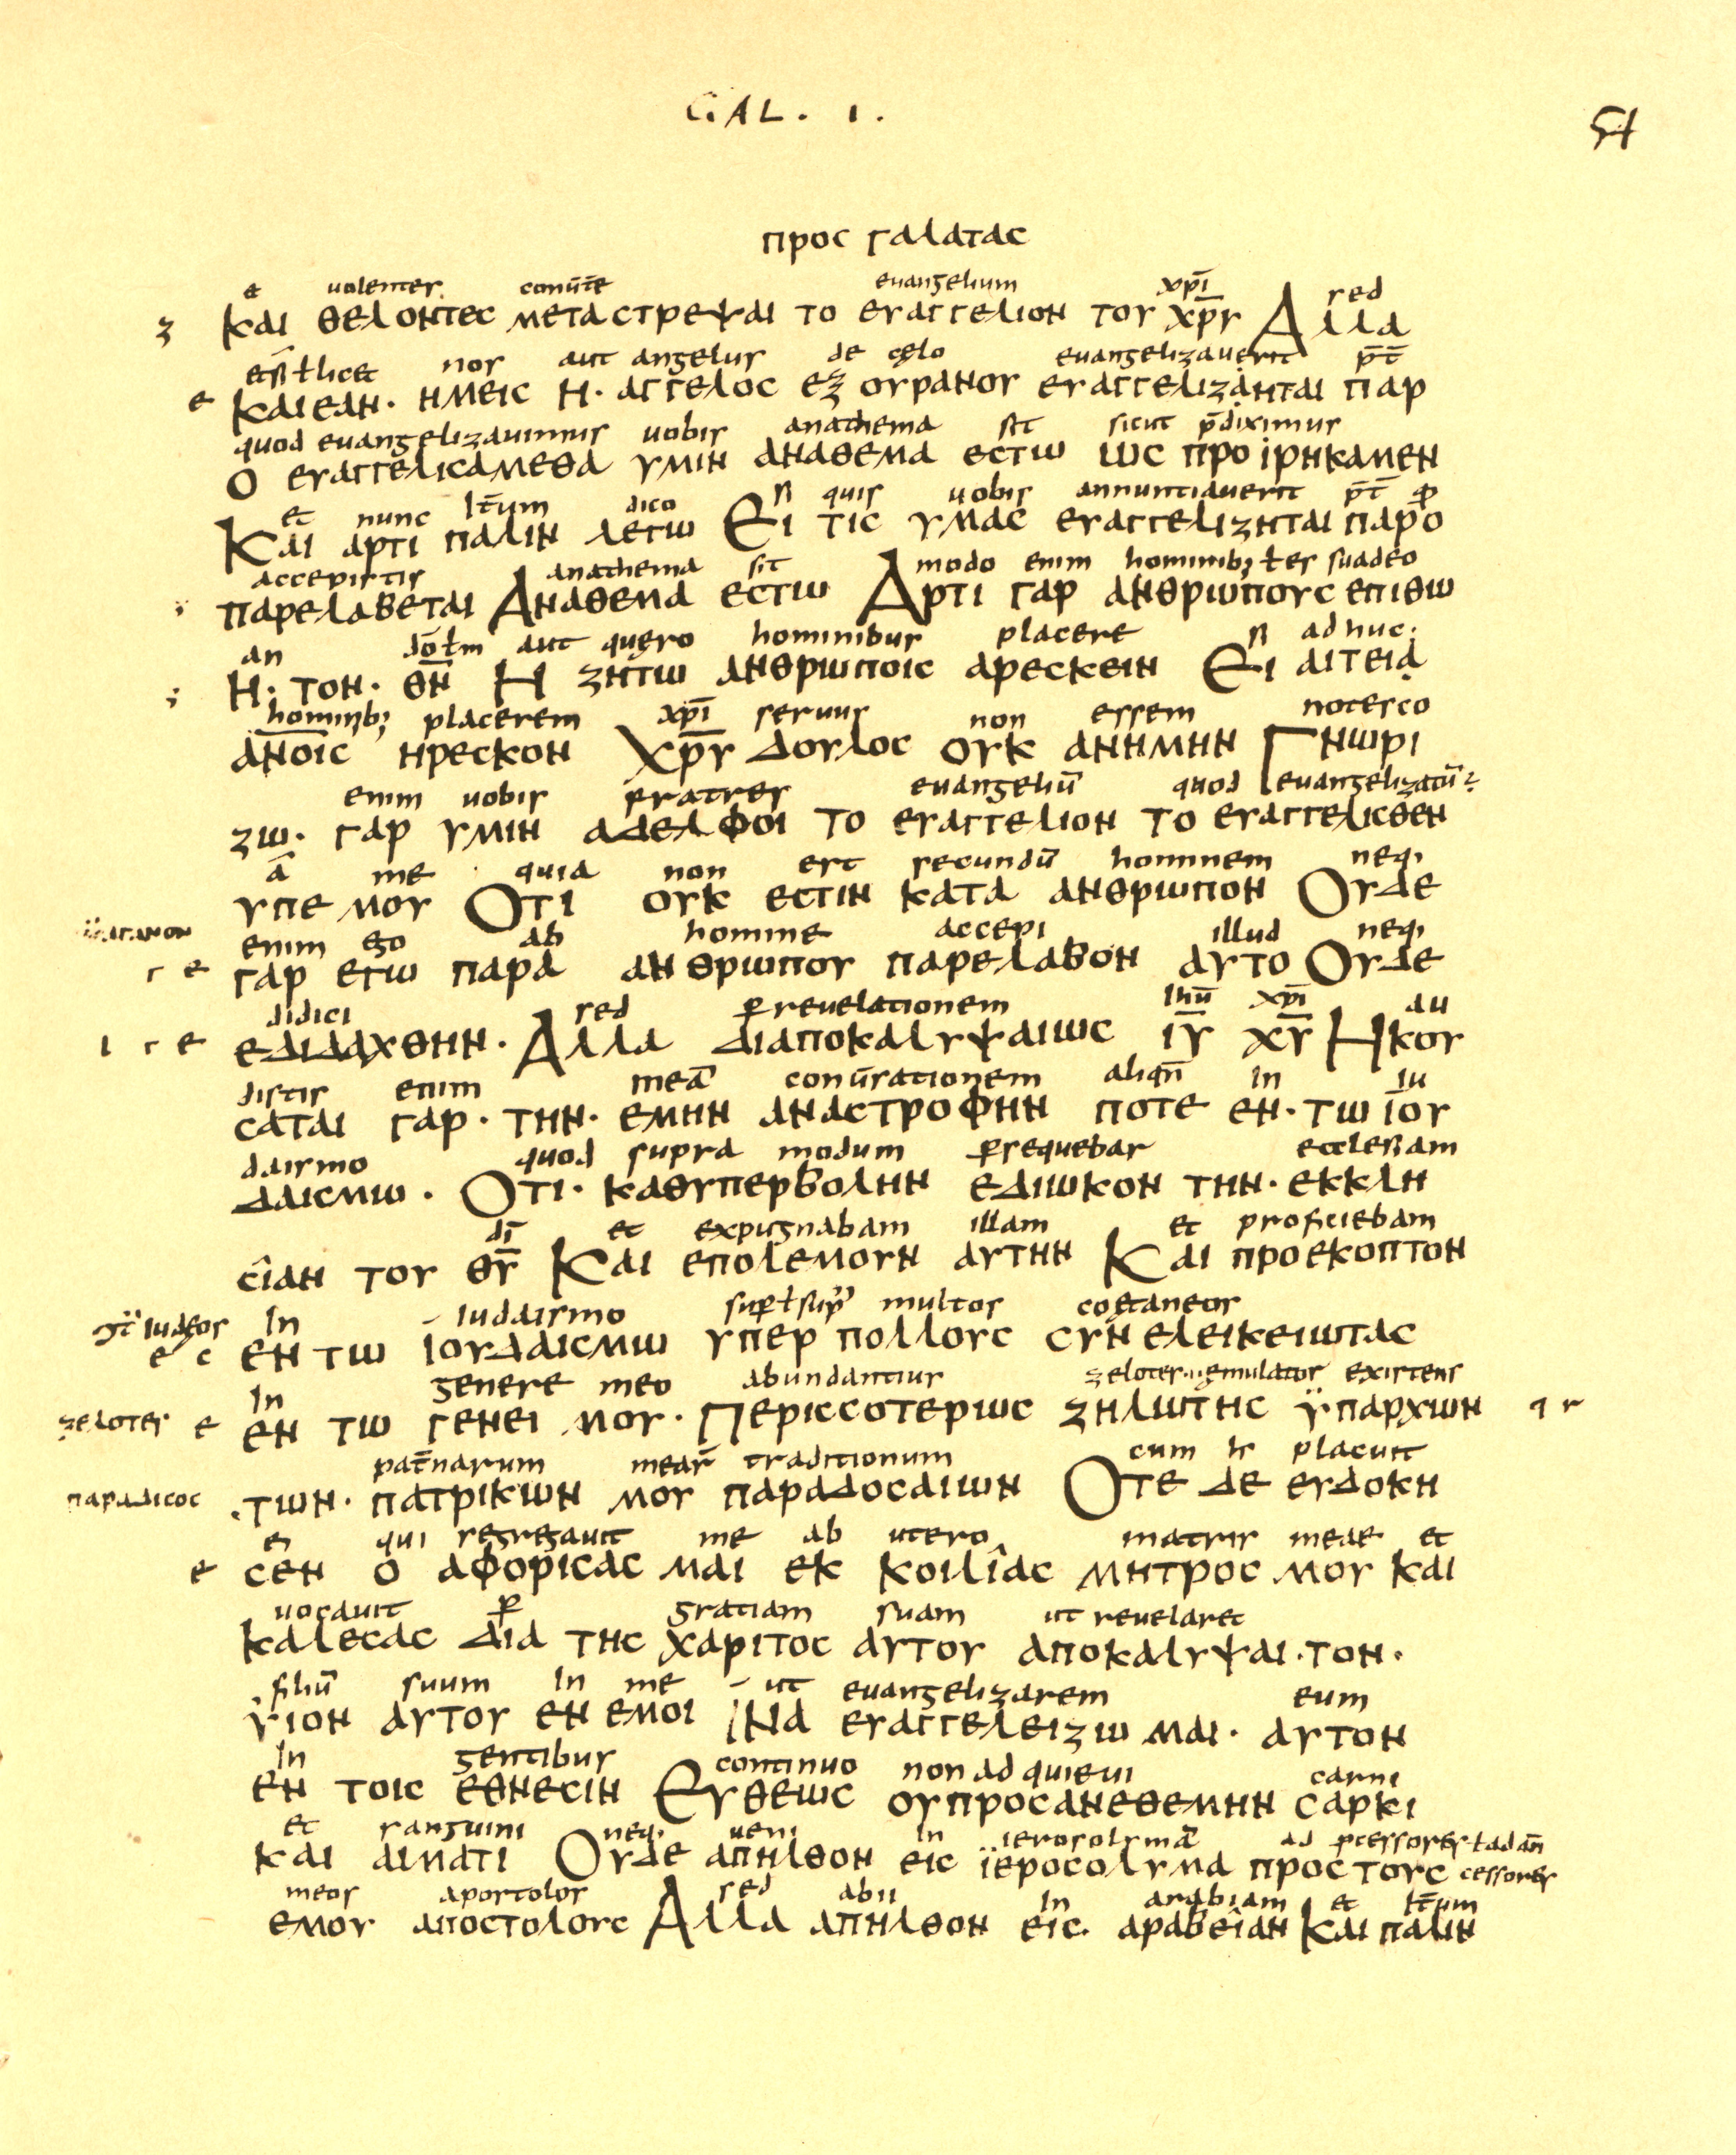 GAL. 1.
54
προς γαλατας
et uolentes conuͤte euangelium xp̄i sed
και θελοντες μεταστρεψαι το ευαγγελιον του χρ̄υ Αλλα
nos aut angelus de cęlo euangelizauerit p̄t̄
και εαν· ημεις η· αγγελος εξ ουρανου ευαγγελιζηνται παρ
quod euangelizauimus uobis anathema sit sicut p̄diximus
ο ευαγγελισαμεθα υμιν αναθεμα εστω ως προιρηκαμεν
et nunc It̄um dico si quis uobis annuntiauerit p̄t̄ qđ
Και αρτι παλιν λεγω Ει τις υμας ευαγγελιζηται παρο
accepistis anathema sit modo enim hominib; ł es suadeo
παρελαβεται Αναθεμα εστω Αρτι γαρ ανθρωπους επιθω
an dō łm aut quęro hominibus placere si adhuc·
Η· τον· θ̄ν̄ Η ζητω ανθρωποις αρεσκειν Ει αιτεια
hominib; placerem xp̄i seruus non essem notesco
ανοις ηρεσκον Χρ̄υ δουλος ουκ ανημην Γνωρι
enim uobis fratres euangeliū quod euangelizatū:
ζω· γαρ υμιν αδελφοι το ευαγγελιον το ευαγγελισθεν
ā me quia non est secundū hominem neq;
υπε μου Οτι ουκ εστιν κατα ανθρωπον Ουδε
enim ego ab homine accepi illud neq;
γαρ εγω παρα ανθρωπου παρελαβον αυτο Ουδε
didici sed p̱ reuelationem Ihū xp̄i au
εδιδαχθην· Αλλα διαποκαλυψαιως ῑῡ χ̄ῡ Ηκου
distis enim meā conūsationem aliqn̄ in iu
σαται γαρ· την· εμην αναστροφην ποτε εν· τω ιου
daismo quod supra modum p̱sequebar ecclesiam
δαισμω· Οτι· καθυπερβολην εδιωκον την· εκκλη
dī et expugnabam illam et proficiebam
σιαν του θ̄ῡ Και επολεμουν αυτην Και προεκοπτον
In Iudaismo multos coętaneos
εν τω Ιουδαισμω υπερ πολλους συν ελεικειωτας
In genere meo abundantius zelotes ęmulator existens
εν τω γενει μου· Περισσοτερως ζηλωτης ϋπαρχων
zelotes
pat̄narum mear̄ traditionum cum ir placuit
παραδισος
·των· πατρικων μου παραδοσαιων Οτε δε ευδοκη
qui segregauit me ab utero matris meae et
σεν ο αφορισας μαι εκ κοιλιας μητρος μου και
uocauit p̱ gratiam suam ut reuelaret
καλεσας δια της χαριτος αυτου αποκαλυψαι·τον·
filiū suum In me ut euangelizarem eum
υιον αυτου εν εμοι ΙΝα ευαγγελειζω μαι· αυτον
In gentibus continuo non adquieui carni
εν τοις εθνεσιν Ευθεως ουπροσανεθεμην σαρκι
et sanguini neq; ueni in ierosolymā ad p̄cessores ł ad an̄
και αιματι Ουδε απηλθον εις ϊεροσολυμα προς τους cessores
meos apostolos sed abii In arabiam et It̄um
εμου αποστολους Αλλα απηλθον εις· αραβειαν Και παλιν